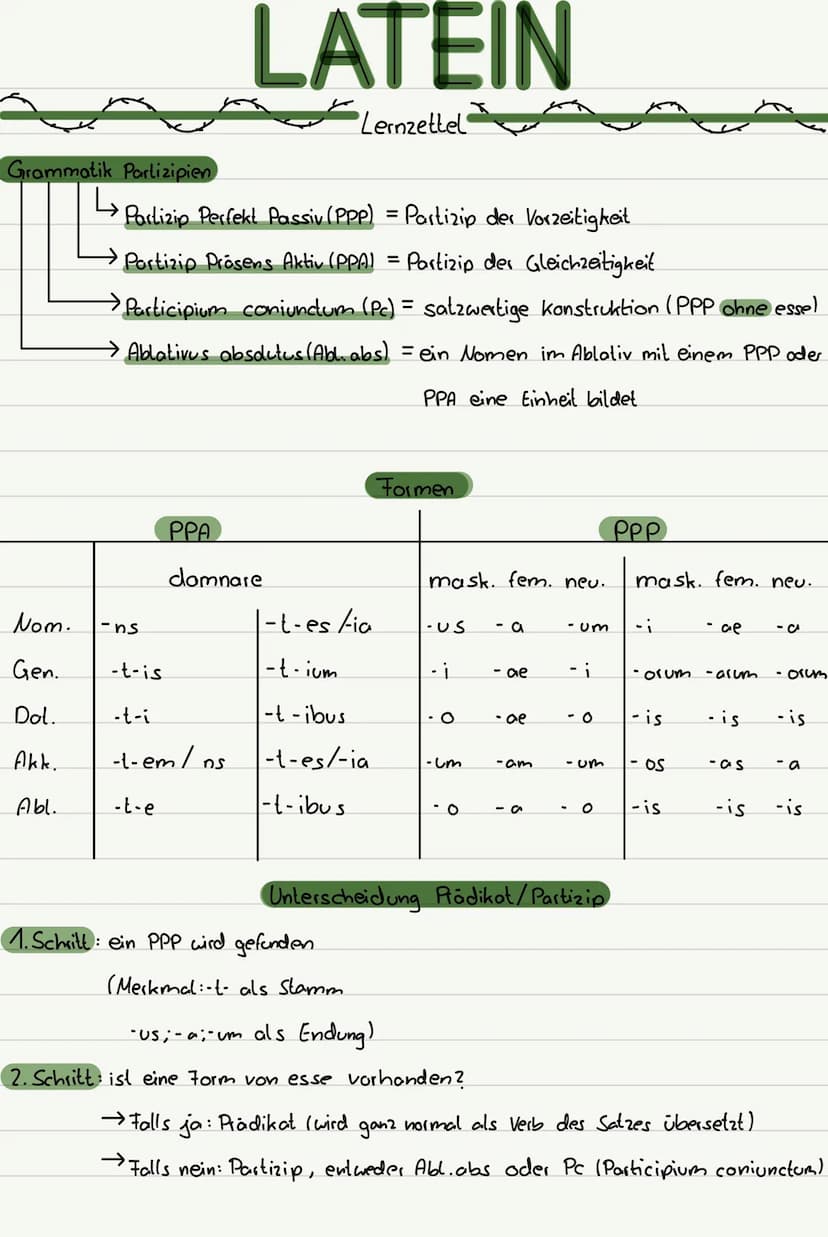 LATEIN
Lernzettel
Grammatik Partizipien
→ Partizip Perfekt Passiv (PPP) = Partizip der Vorzeitigkeit
→ Partizip Präsens Aktiv (PPA) = Partizip der Gleichzeitigkeit
→ Participium coniunctum (Pc) = satzwertige Konstruktion (PPP ohne esse)
→ Ablativus absolutus (Abl. abs) = ein Nomen im Ablativ mit einem PPP oder
PPA eine Einheit bildet
Formen
PPA PPP
domnare mask. fem. neu. mask. fem. neu.
Nom. -ns -t-es/-ia -us -a -um -i -ae -a
Gen. -t-is -t-ium -i -ae -i -orum -arum -orum
Dat. -t-i -t-ibus -o -ae -o -is -is -is
Akk. -t-em/ns -t-es/-ia -um -am -um -os -as -a
Abl. -t-e -t-ibus -o -a -o -is -is -is
Unterscheidung Prädikat/Partizip
1. Schritt: ein PPP wird gefunden
(Merkmal: -t- als Stamm
-us; -a; -um als Endung)
2. Schritt: ist eine Form von esse vorhanden?
→ Falls ja: Prädikat (wird ganz normal als Verb des Satzes übersetzt)
→ Falls nein: Partizip, entweder Abl. abs oder Pc (Participium coniunctum)